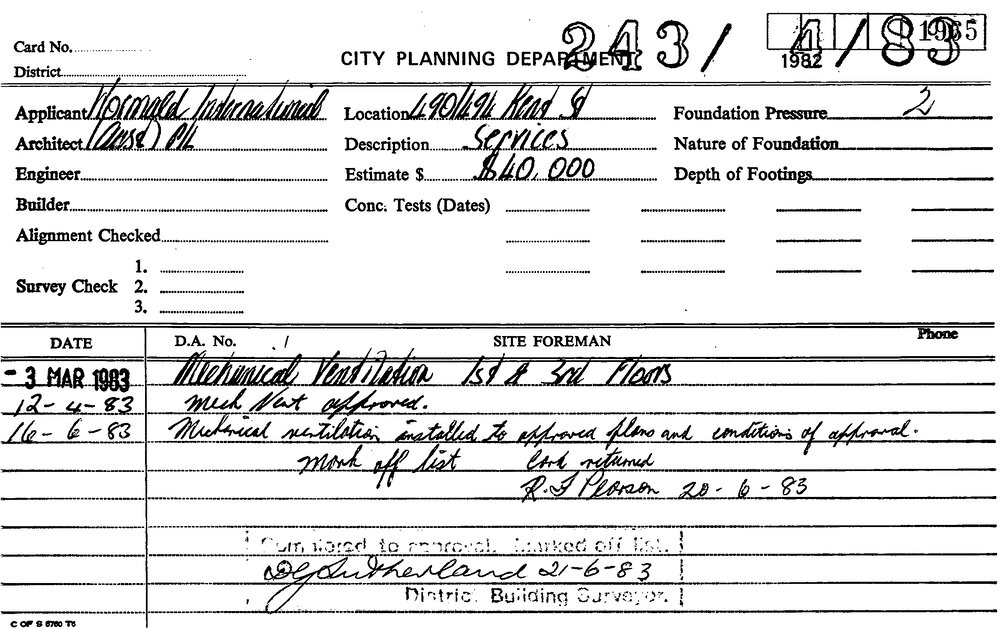 243 / 4 / 83
1965
Card No.
CITY PLANNING DEPARTMENT
1982
District
Applicant Wormald International Location 490/494 Kent St Foundation Pressure 2
Architect (Aust) P/L Description Services Nature of Foundation
Engineer Estimate $ $40,000 Depth of Footings
Builder Conc. Tests (Dates)
Alignment Checked
1.
Survey Check 2.
3.
DATE D.A. No. / SITE FOREMAN Phone
- 3 MAR 1983 Mechanical Ventilation 1st & 3rd Floors
12-4-83 Mech Vent approved.
16-6-83 Mechanical ventilation installed to approved plans and conditions of approval.
Mark off list Card returned
R. J Pearson 20-6-83
to approval. Marked off list.
DG Sutherland 21-6-83
District Building Surveyor.
C OF S 5760 T5